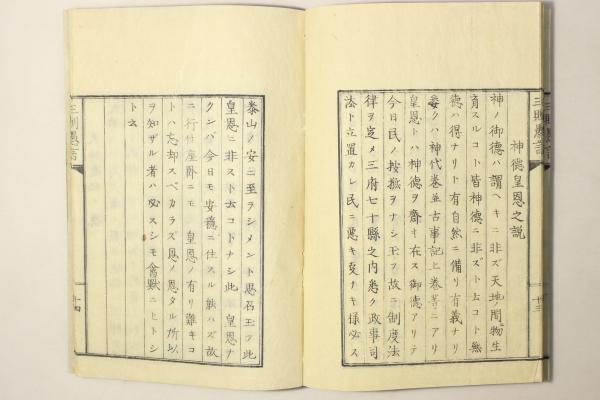 神徳皇恩之説
神ノ御徳ハ謂ヘキニ非ズ天地ノ間物生
育スルコト皆神徳ニ非ズト云コト無
徳ハ得ナリト有自然ニ備リ有義ナリ
委クハ神代巻並古事記上巻等ニアリ
皇恩トハ神徳ヲ齋キ在ス御徳アリテ
今日民ノ按撫ヲナシ玉フ故ニ制度法
律ヲ定メ三府七十縣之内悉ク政事司
法ト立置カレ民ニ悪キ事ナキ様必ス
十三
泰山ノ安ニ至ラシメント思召玉フ此
皇恩ニ非スト云コトナシ此皇恩ナ
クンバ今日モ安穏ニ住スル能ハズ故
ニ行住座臥ニモ皇恩ノ有リ難キコ
トハ忘却スベカラズ恩ノ恩タル所以
ヲ知ザル者ハ必スシモ禽獣ニヒトシ
ト云
三則愚言
十四